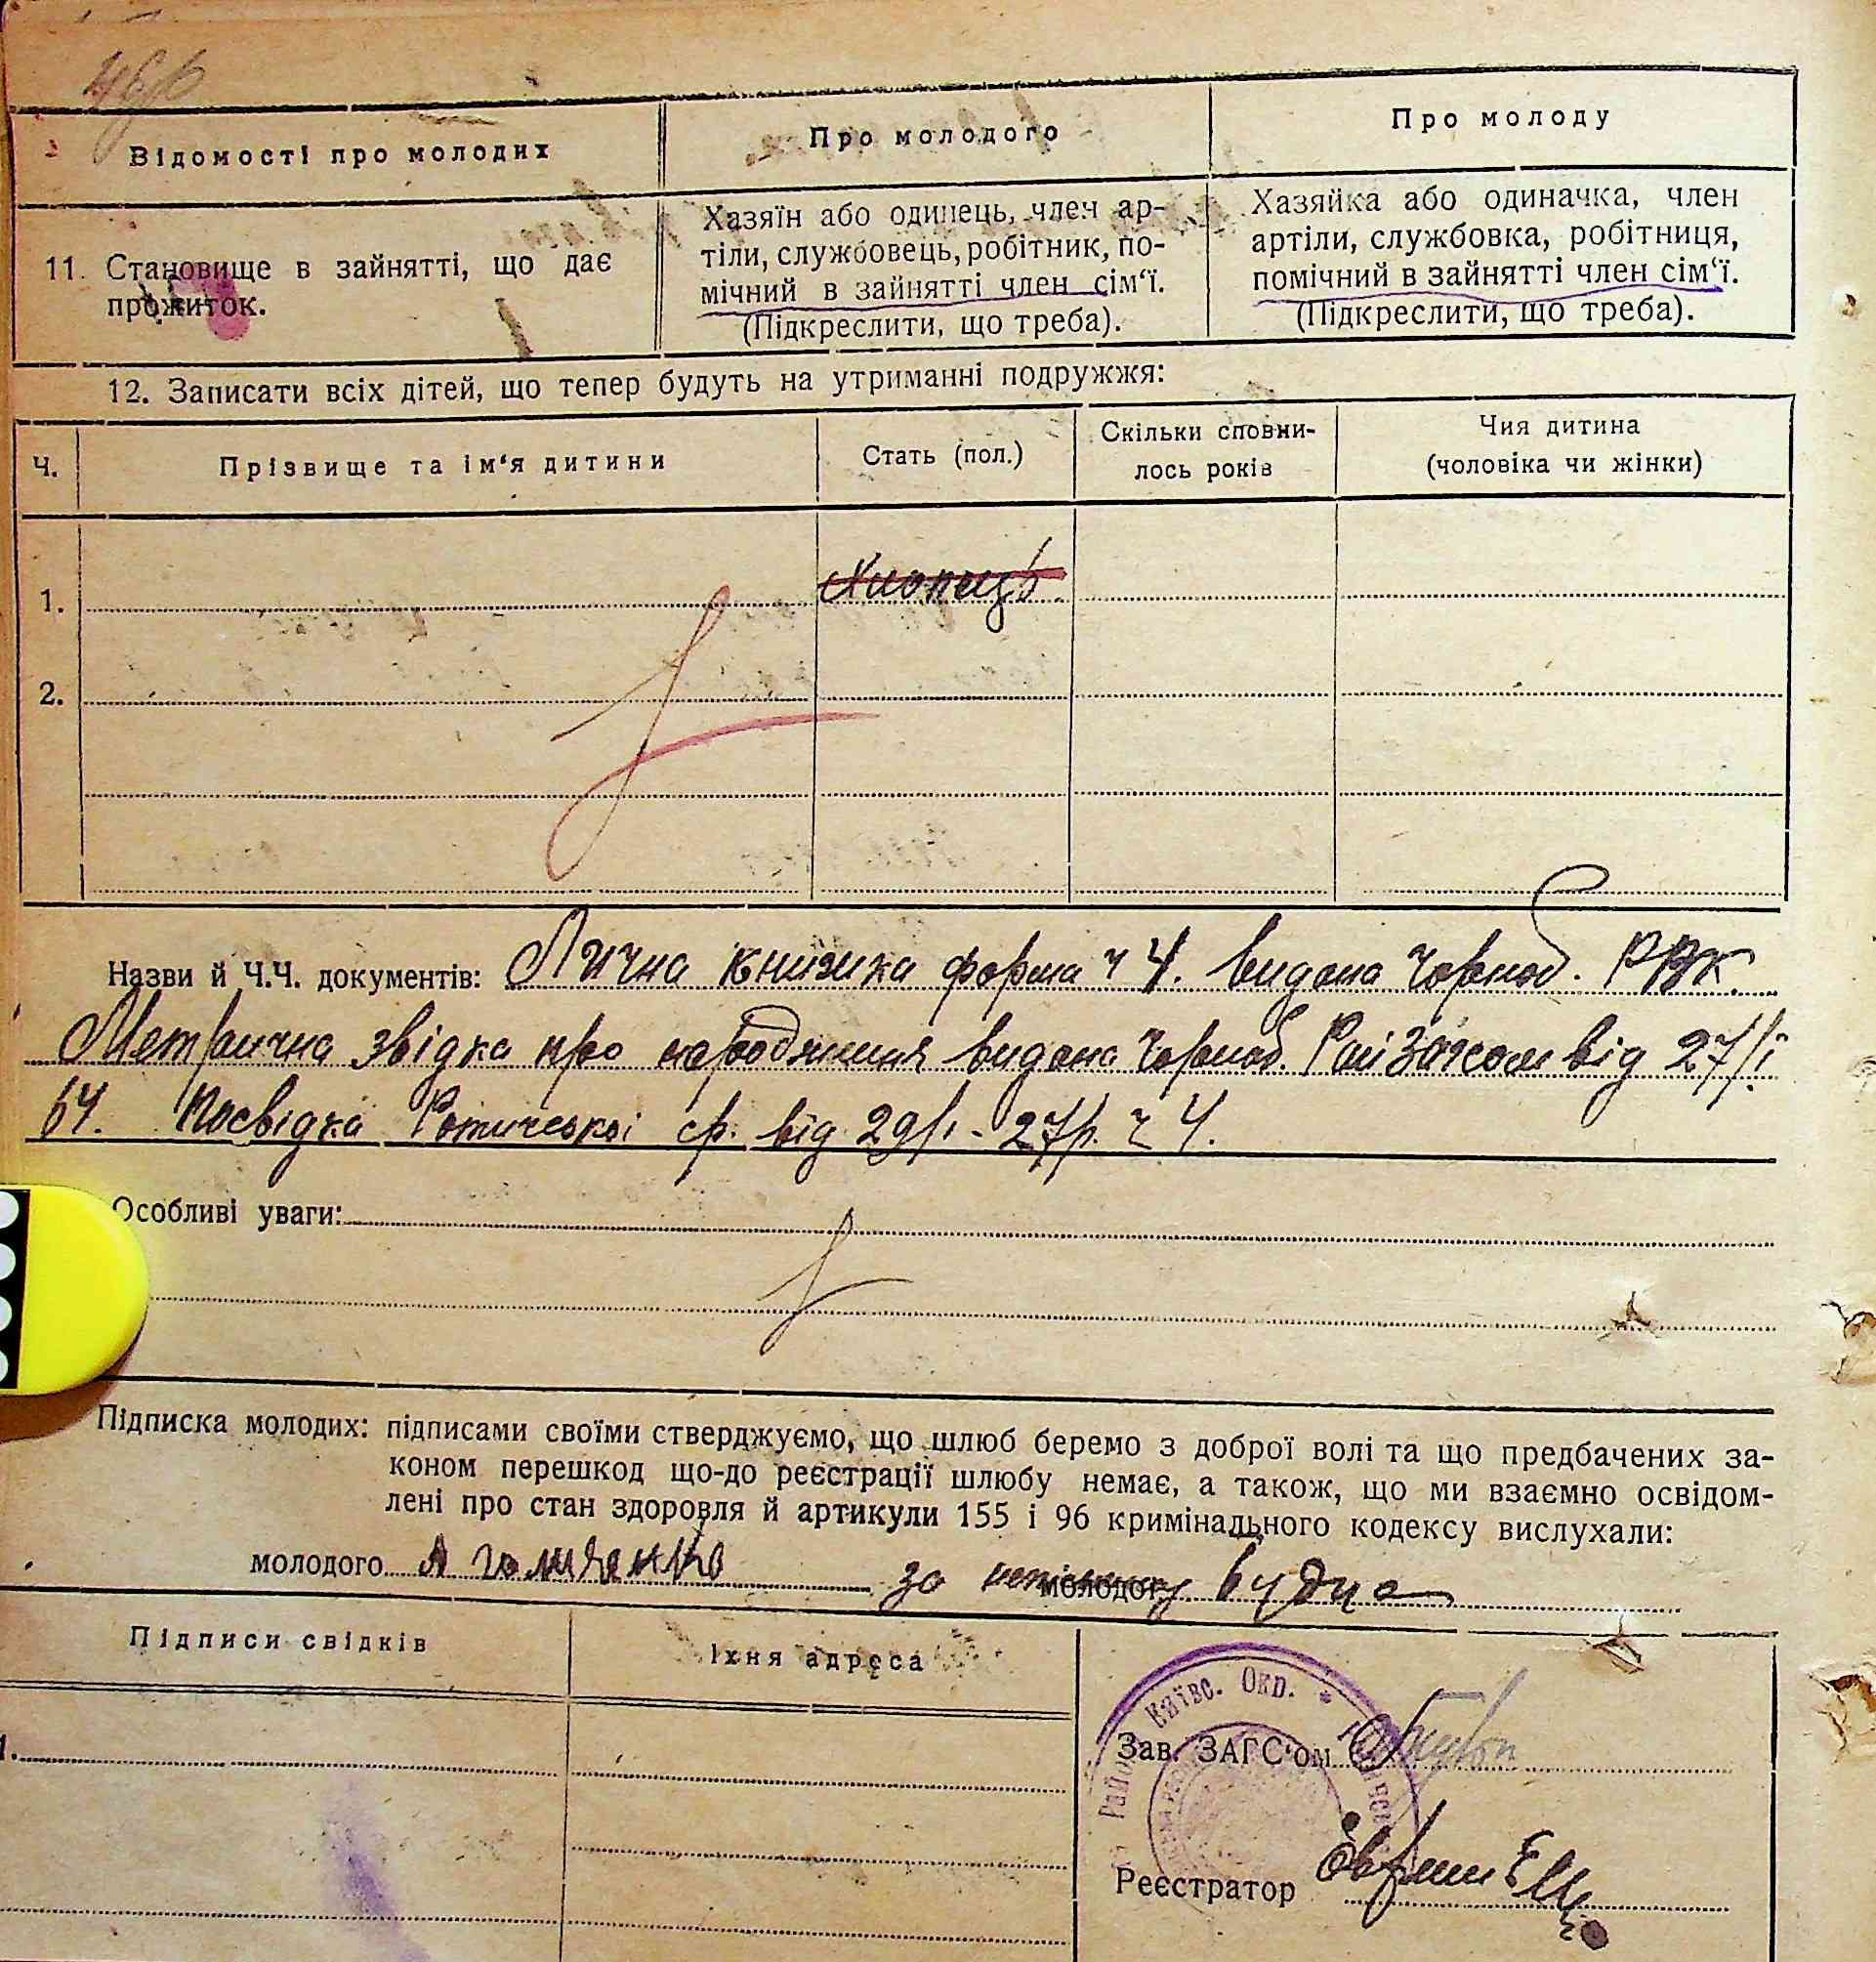 Відомості про молодих
Про молодого
Про молоду
11. Становище в зайнятті, що дає
прожиток.
Хазяїн або одинець, член ар-
тіли, службовець, робітник, по-
мічний в зайнятті член сім‘ї.
(Підкреслити, що треба).
Хазяйка або одиначка, член
артіли, службовка, робітниця,
помічний в зайнятті член сім‘ї.
(Підкреслити, що треба).
12. Записати всіх дітей, що тепер будуть на утриманні подружжя:
Ч.
Прізвище та ім‘я дитини
Стать (пол.)
Скільки сповни-
лось років
Чия дитина
(чоловіка чи жінки)
1. Хлопець
2.
Назви й Ч.Ч. документів: Лична книжка форма ч 4. видана Чорноб. РВК.
Метрична звідка про народження видана Чорноб. Райзагсом від 27/I
64. Посвідка Ротичської ср. від 29/I - 27р. ч 4.
Особливі уваги:
Підписка молодих: підписами своїми стверджуємо, що шлюб беремо з доброї волі та що предбачених за-
коном перешкод що-до реєстрації шлюбу немає, а також, що ми взаємно освідом-
лені про стан здоровля й артикули 155 і 96 кримінального кодексу вислухали:
молодого за молодої
Підписи свідків
Їхня адреса
1.
Київс. Окр.
Зав. ЗАГС‘ом
Реєстратор